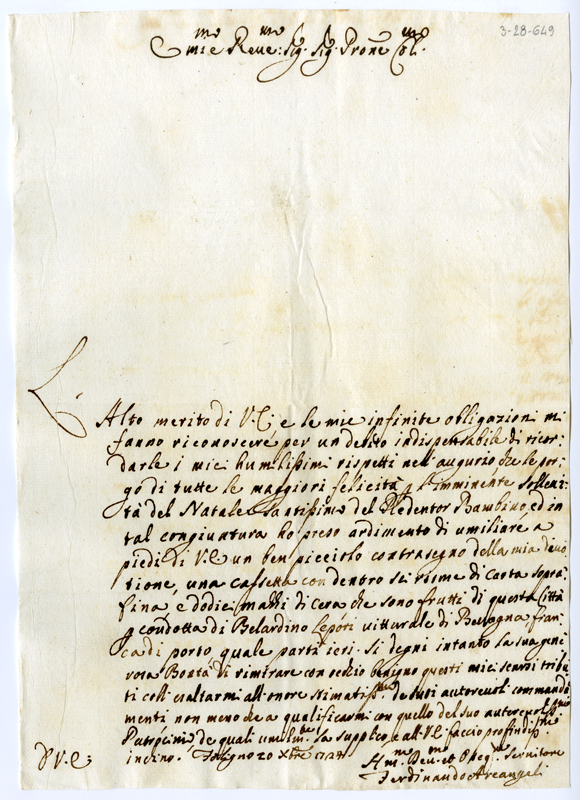 3-28-649
Emmo e Reve:mo Sig. Sig. Prone Col:mo
L'
Alto merito di V.E; e le mie infinite obligazioni mi
fanno riconoscere per un debito indispensabile di ricor:
darle i miei humilissimi rispetti nell'augurio che le por:
go di tutte le maggiori felicità p l'imminente sollen:
tà del Natale Santissimo del Redentor Bambino, ed in
tal congiuntura ho preso ardimento di umiliare a
piedi di V.E un ben picciolo contrasegno della mia devo
tione, una cassetta con dentro sei risme di carta sopra:
fina, e dodici mazzi di cera che sono frutti di questa città
p condotta di Belardino Lepori vitturale di Bevagna fran:
ca di porto quale partì ieri. Si degni intanto la sua gene
rosa Bontà di rimirare con occhio benigno questi miei scarsi tribu
ti coll'esaltarmi all'onore stimatissmo de suoi autorevoli commanda
menti non meno che a qualificarmi con quello del suo autorevolissmo
Patrocinio, de quali umilmte la supplico e all'V.E faccio profondissme
inchino. Foligno 20 Xbre 1727
D V.E;
Hmo Devmo et Obligmo Servitore
Ferdinando Arcangeli